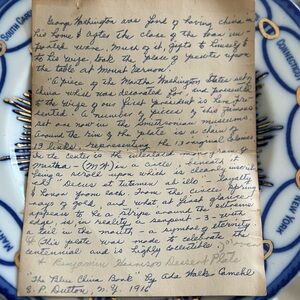 George Washington was fond of having china in
his home & after the close of the war im-
ported ware. Much of it, gifts to himself &
to his wife took the place of pewter upon
the table at Mount Vernon.
"A piece of the Martha Washington States set of
china which was decorated for and presented
to the wife of our first president is here pre-
sented. A number of pieces of this famous
set are now in the Smithsonian museum.
Around the rim of the plate is a chain of
13 links, representing the 13 original colonies
In the center is the intertwined monogram of
Martha - (MW) in a circle, beneath it
being a scroll upon which is clearly writ-
"Decus et tutamen ab illo - Royalty
& Honor from each. From the circle spring
rays of gold, and what at first glance
appears to be a stripe around the extreme
edge is in reality a serpent - 3 - with
a tail in the mouth - a symbol of eternity.
This plate was made to celebrate
centennial and is highly collectible."
Benjamin Harrison Dessert Plate
"The Blue China Book" by Ada Walker Camehl
E. P. Dutton, N.Y. 1916
SOUTH CAROLINA
CONNECTICUT
NEW YORK